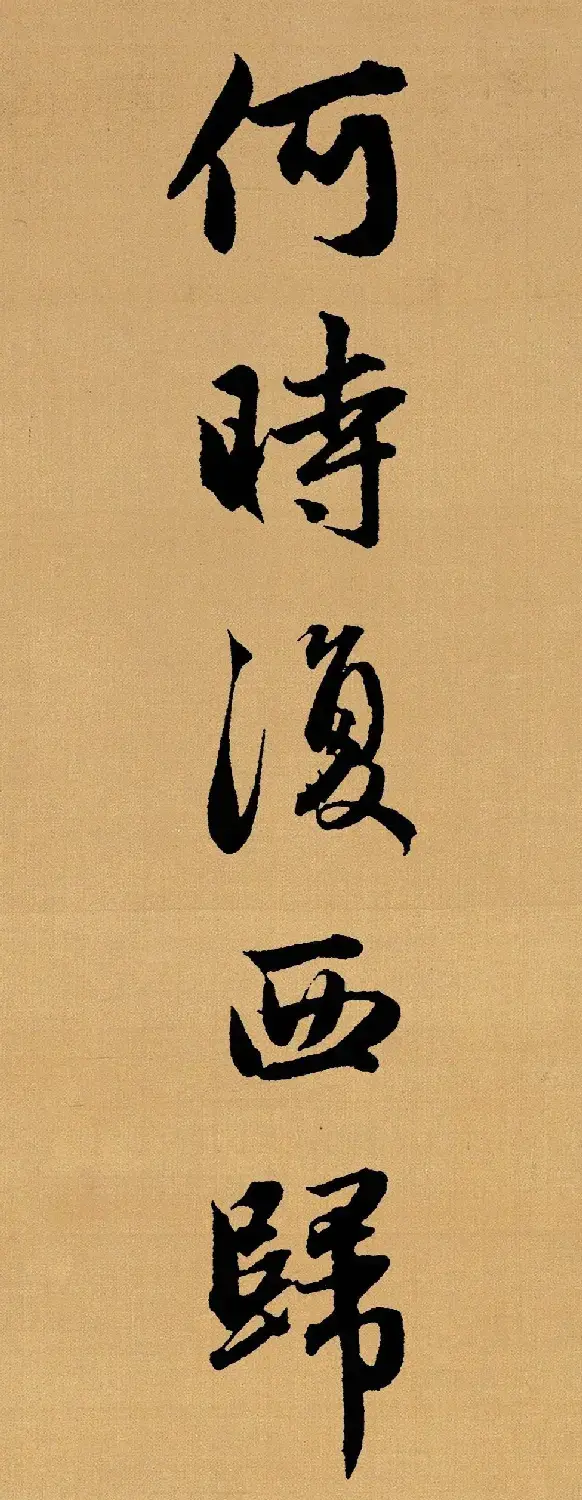 何時復西歸